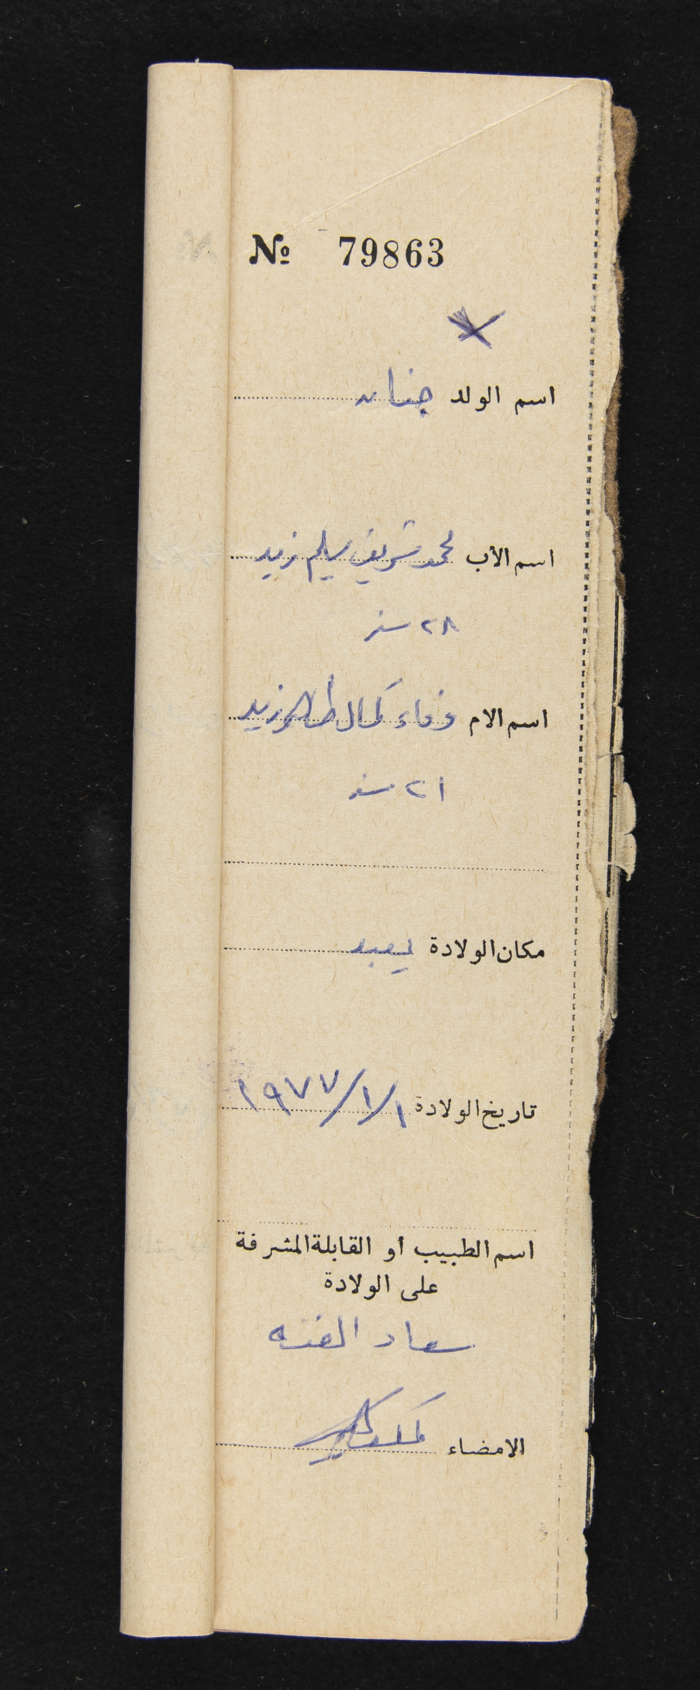 № 79863
اسم الولد جنان
اسم الأب محمد شريف سليم زيد
٢٨ سنه
اسم الام وفاء كمال طاهر زيد
٢١ سنه
مكان الولادة يعبد
تاريخ الولادة ١/١/١٩٧٧
اسم الطبيب او القابلة المشرفة
على الولادة
سعاد
الامضاء